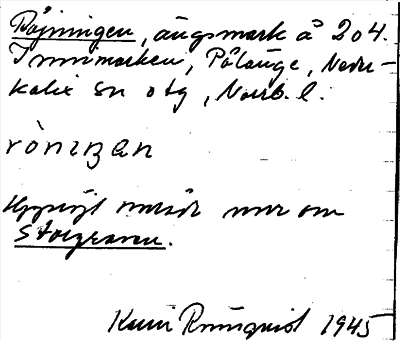 Röjningen, ängsmark å 204.
Innmarken, Pålänge, Neder-
kalix sn o tg, Norrb. l.
rònɪŋan
Uppgift
mer om
Storgraven.
Rönnqvist 1945